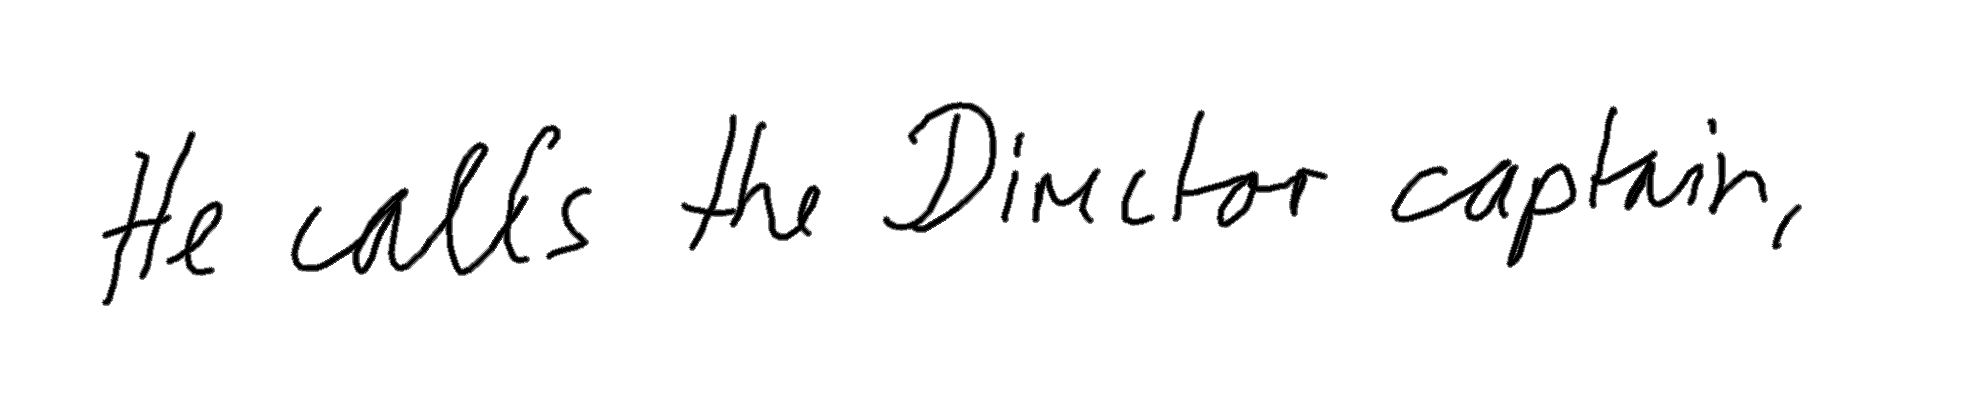 He calls the Director captain,